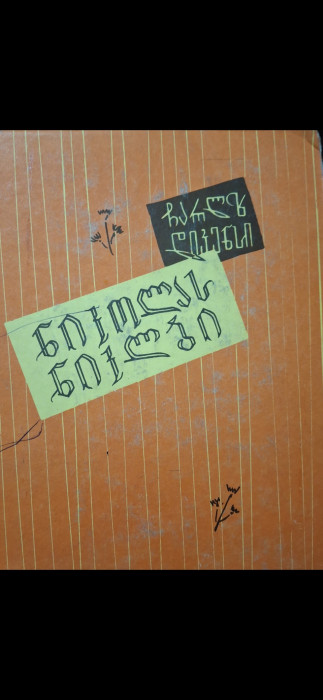 ჩარლზ
დიკენსი
ნიკოლას
ნიკლბი